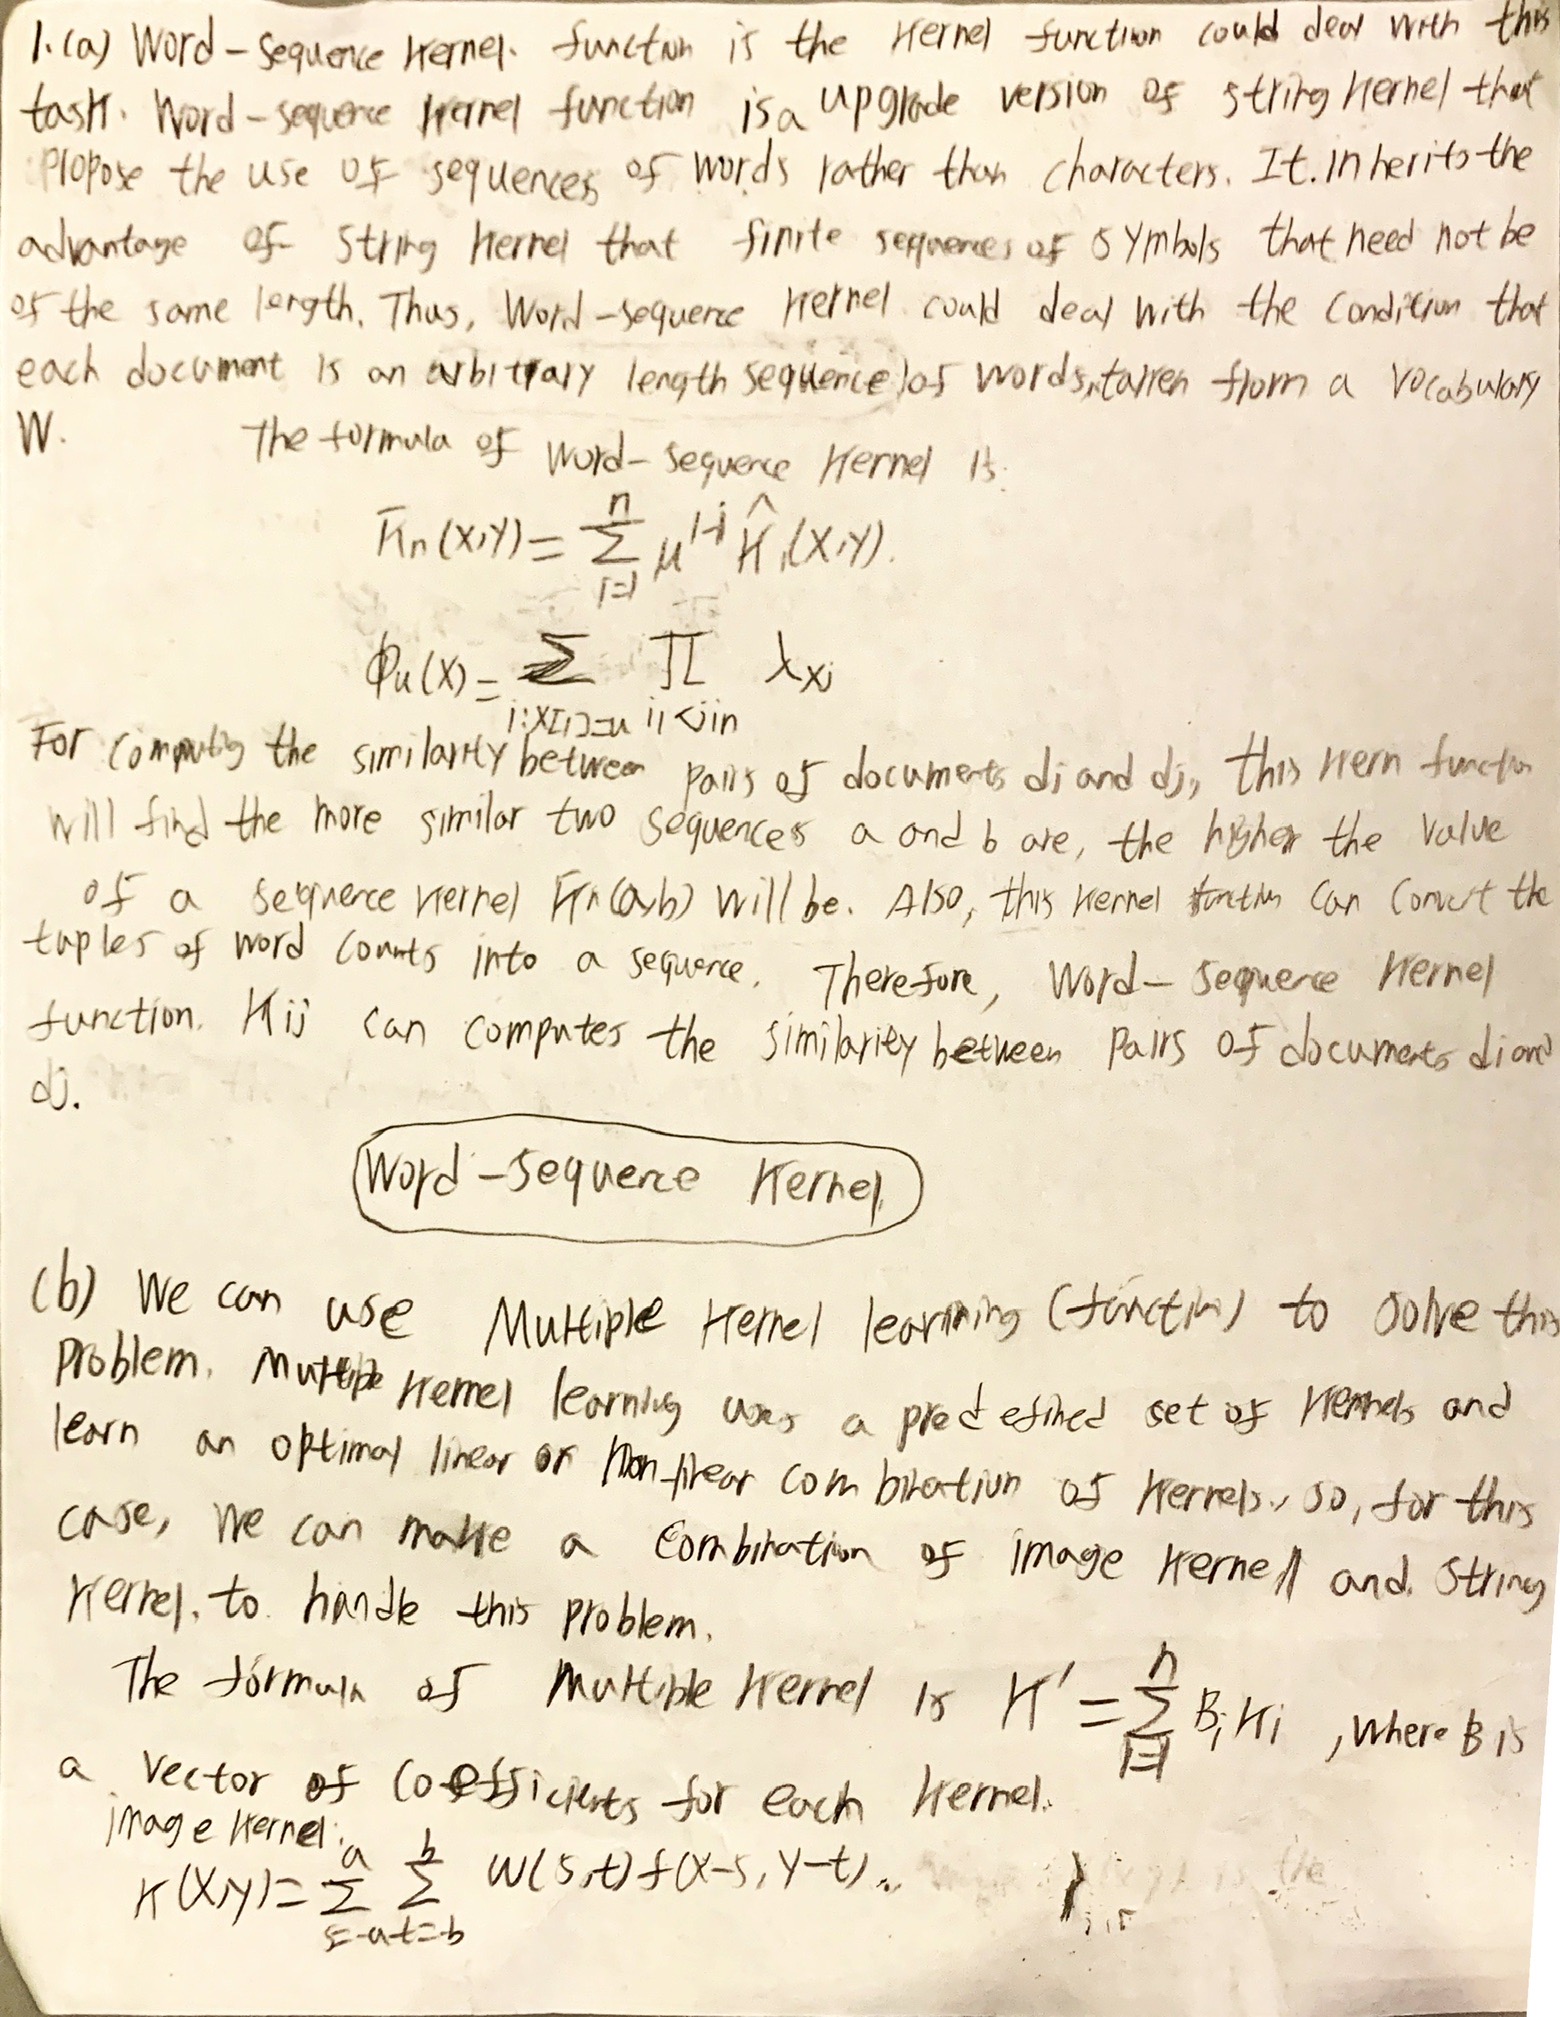 1.(a) Word-sequence kernel. function is the kernel function could deal with this
task. Word-sequence kernel function is a upgrade version of string kernel that
propose the use of sequences of words rather than characters. It. inherits the
advantage of string kernel that finite sequences of symbols that need not be
of the same length. Thus, Word-sequence kernel could deal with the condition that
each document is an arbitrary length sequence of words, taken from a vocabulary
W. The formula of word-sequence kernel is:
K̄n(x,y) = Σ_{i=1}^{n} μ^{1-i} K̂i(x,y).
Φu(x) = Σ_{i:x[i]=u} Π_{i1<j<in} λxj
For computing the similarity between pairs of documents di and dj, this kern function
will find the more similar two sequences a and b are, the higher the value
of a sequence kernel K̄n(a,b) will be. Also, this kernel function can convert the
tuples of word counts into a sequence. Therefore, Word-sequence kernel
function. Kij can computes the similarity between pairs of documents di and
dj.
Word-sequence Kernel.
(b) We can use Multiple kernel learning (function) to solve this
problem. Multiple kernel learning uses a predefined set of kernels and
learn an optimal linear or non-linear combination of kernels. so, for this
case, we can make a combination of image kernel and. string
kernel. to handle this problem.
The formula of Multible kernel is K' = Σ_{i=1}^{n} Bi Ki , where B is
a vector of coefficients for each kernel.
image kernel:
K(x,y) = Σ_{s=-a}^{a} Σ_{t=-b}^{b} w(s,t) f(x-s, y-t)..